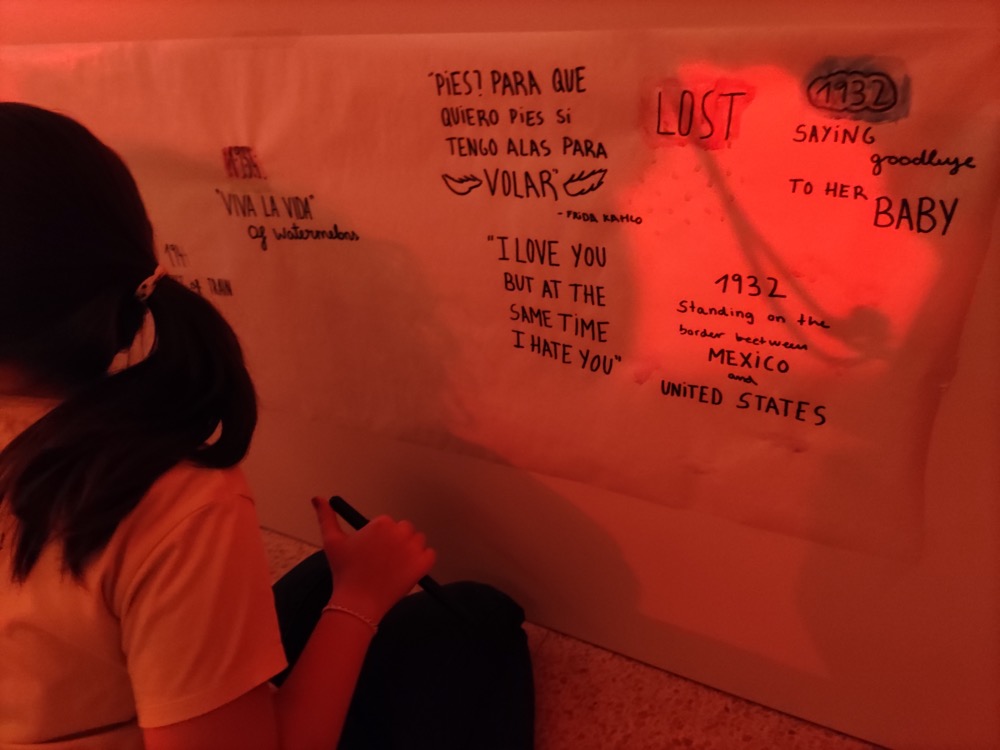 "VIVA LA VIDA"
of watermelons
of TRAIN
"PiES? PARA QUE
QUiERO PiES Si
TENGO ALAS PARA
VOLAR"
- FRIDA KAHLO
"I LOVE YOU
BUT AT THE
SAME TiME
I HATE YOU"
LOST
1932
SAYiNG
goodbye
TO HER
BABY
1932
Standing on the
border beetween
MEXiCO
and
UNiTED STATES